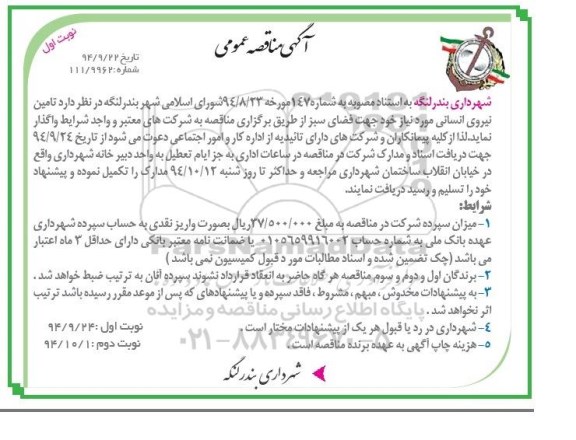 نوبت اول
آگهی مناقصه عمومی
تاریخ ۹۴/۹/۲۲
شماره: ۱۱۱/۹۹۶۲
شهرداری بندرلنگه به استناد مصوبه به شماره ۱۴۷ مورخه ۹۴/۸/۲۳ شورای اسلامی شهر بندرلنگه در نظر دارد تامین
نیروی انسانی مورد نیاز خود جهت فضای سبز از طریق برگزاری مناقصه به شرکت های معتبر و واجد شرایط واگذار
نماید. لذا از کلیه پیمانکاران و شرکت های دارای تائیدیه از اداره کار و امور اجتماعی دعوت می شود از تاریخ ۹۴/۹/۲۴
جهت دریافت اسناد و مدارک شرکت در مناقصه در ساعات اداری به جز ایام تعطیل به واحد دبیر خانه شهرداری واقع
در خیابان انقلاب ساختمان شهرداری مراجعه و حداکثر تا روز شنبه ۹۴/۱۰/۱۲ مدارک را تکمیل نموده و پیشنهاد
خود را تسلیم و رسید دریافت نمایند.
شرایط:
۱- میزان سپرده شرکت در مناقصه به مبلغ ۲۷/۵۰۰/۰۰۰ ریال بصورت واریز نقدی به حساب سپرده شهرداری
عهده بانک ملی به شماره حساب ۰۱۰۵۶۵۹۹۱۶۰۰۲ یا ضمانت نامه معتبر بانکی دارای حداقل ۳ ماه اعتبار
می باشد (چک تضمین شده و اسناد مطالبات مورد قبول کمیسیون نمی باشد)
۲- برندگان اول و دوم و سوم مناقصه هر گاه حاضر به انعقاد قرارداد نشوند سپرده آنان به ترتیب ضبط خواهد شد.
۳- به پیشنهادات مخدوش، مبهم، مشروط، فاقد سپرده و یا پیشنهادهای که پس از موعد مقرر رسیده باشد ترتیب
اثر نخواهد شد.
پایگاه اطلاع رسانی مناقصه و مزایده
۴- شهرداری در رد یا قبول هر یک از پیشنهادات مختار است.
نوبت اول: ۹۴/۹/۲۴
۵- هزینه چاپ آگهی به عهده برنده مناقصه است.
نوبت دوم: ۹۴/۱۰/۱
شهرداری بندرلنگه